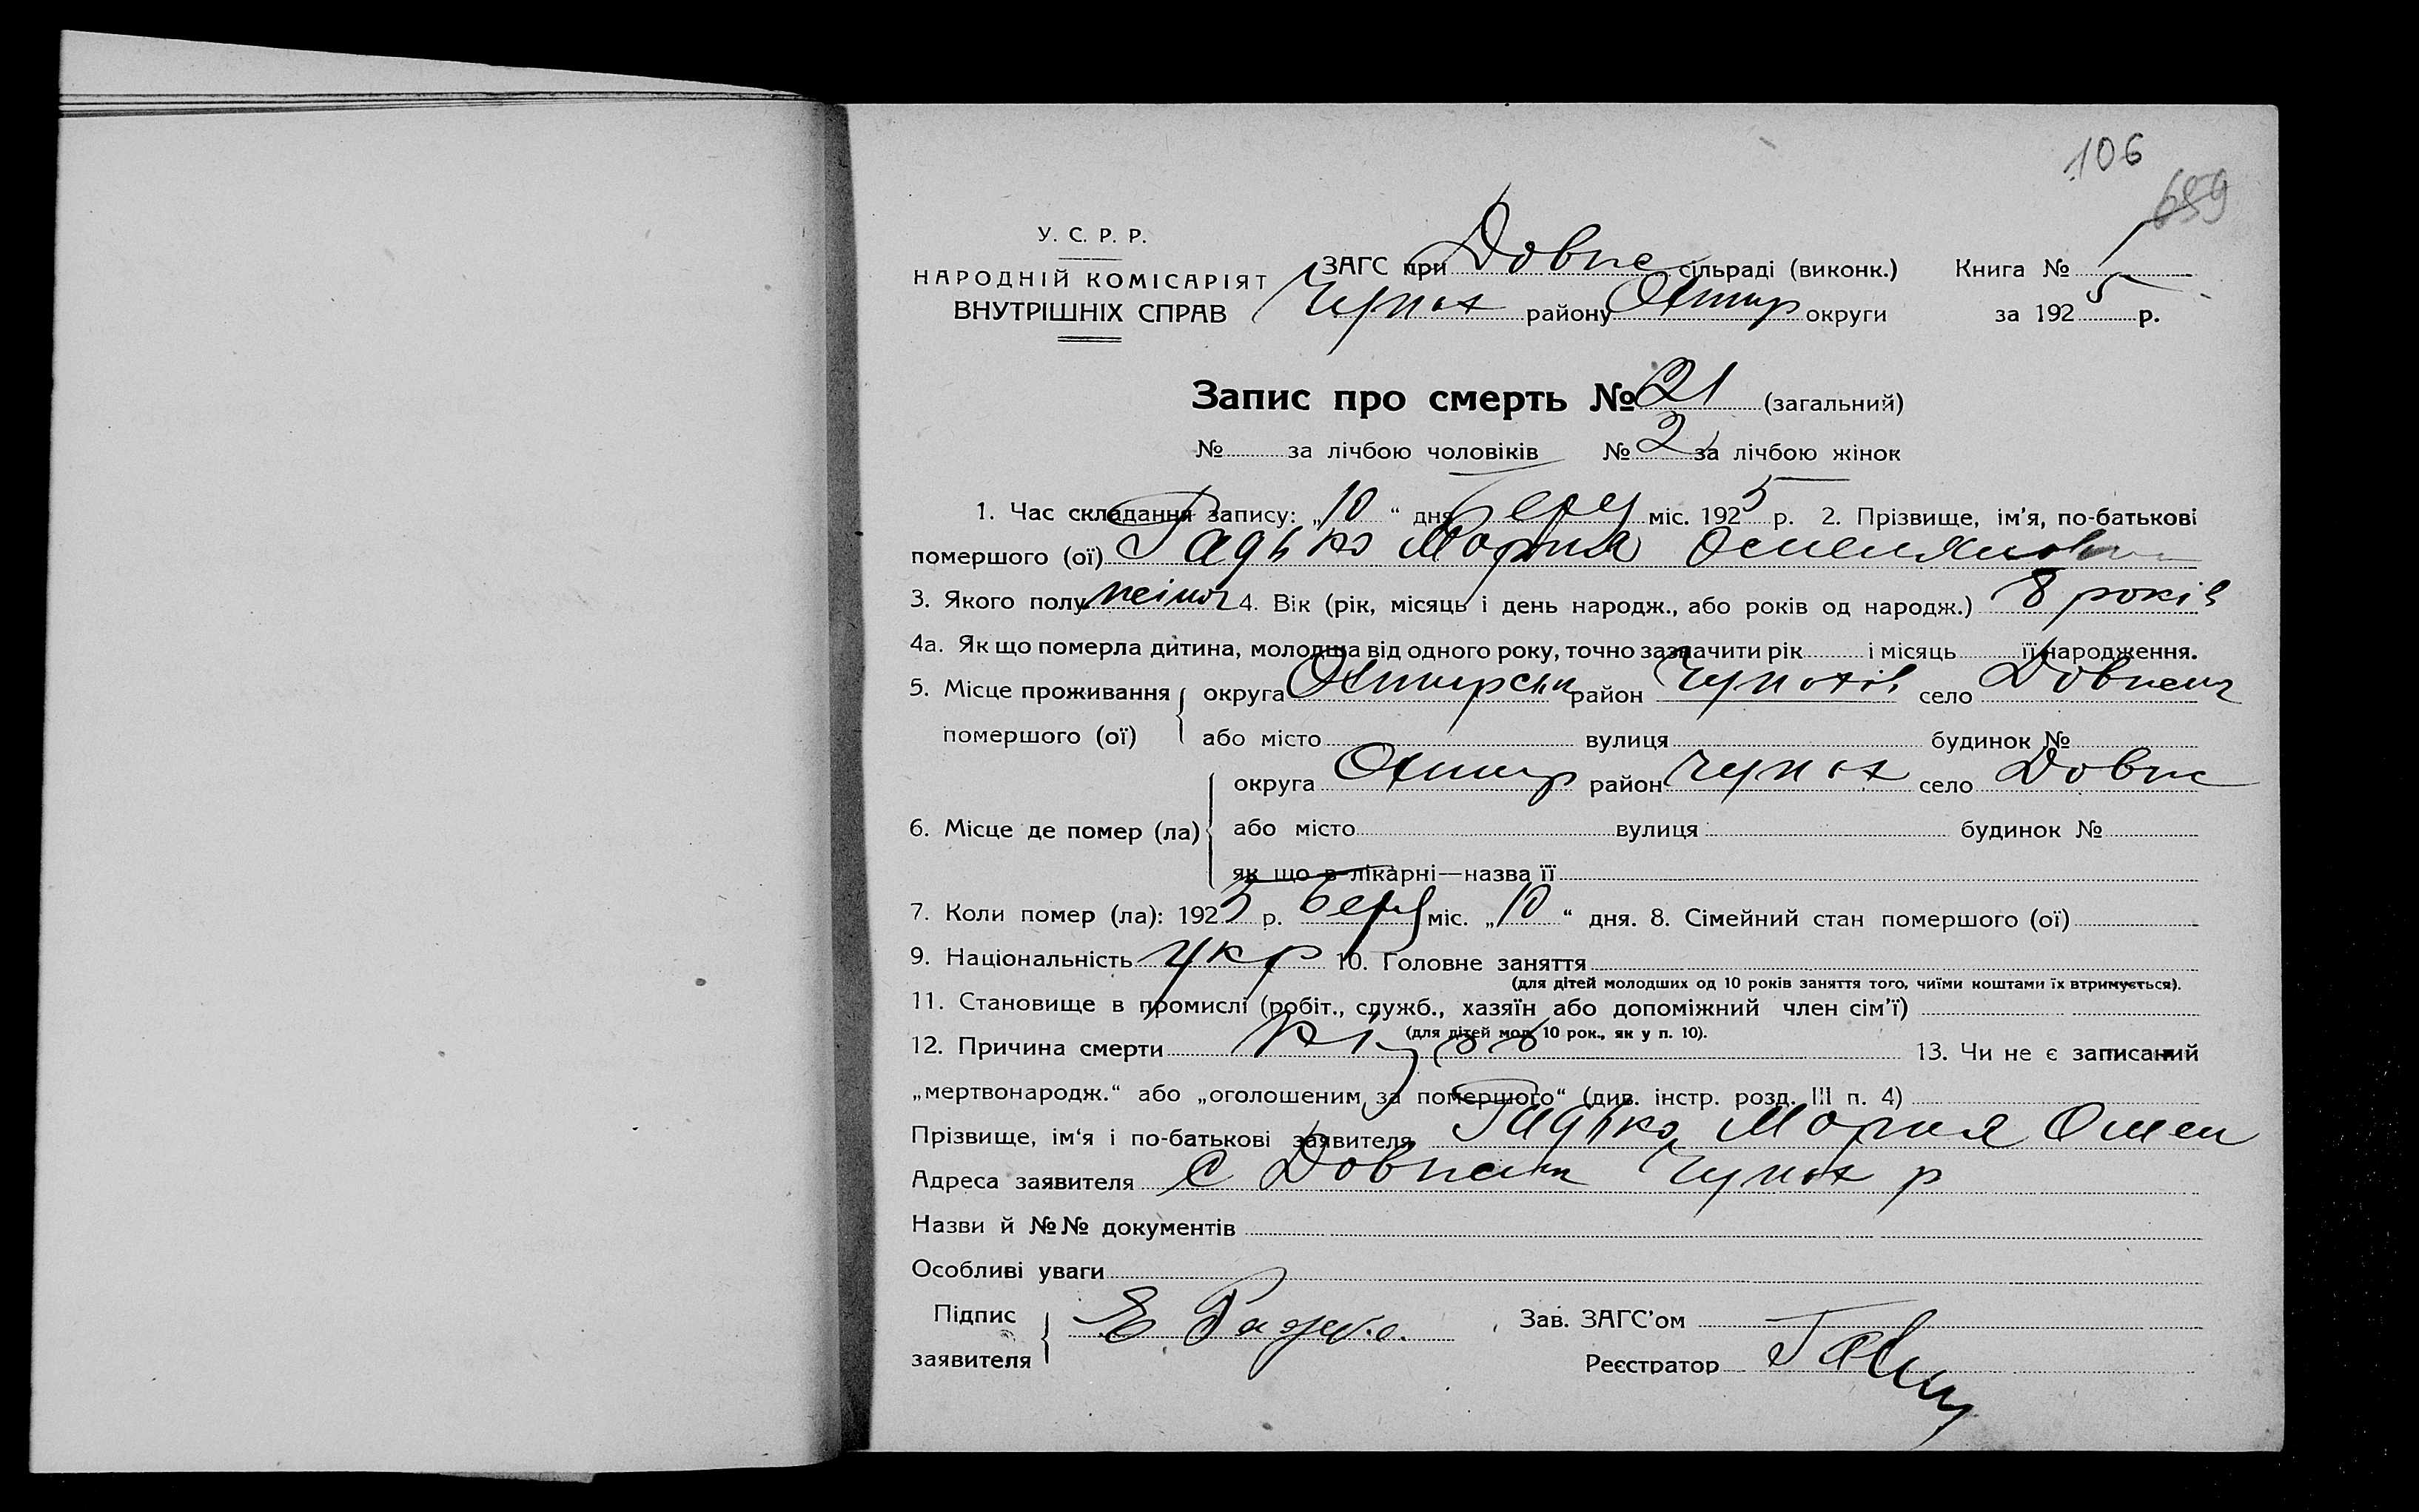 106
659
У. С. Р. Р.
НАРОДНІЙ КОМІСАРІЯТ
ВНУТРІШНІХ СПРАВ
ЗАГС при Довпс сільраді (виконк.) Книга №
Чупах району Охтир округи за 1925 р.
Запис про смерть № 21 (загальний)
№ за лічбою чоловіків № 2 за лічбою жінок
1. Час складання запису: „10“ дня міс. 1925 р. 2. Прізвище, ім'я, по-батькові
помершого (ої) Гадько Мария
3. Якого полу 4. Вік (рік, місяць і день народж., або років од народж.) 8 років
4а. Як що померла дитина, молодша від одного року, точно зазначити рік і місяць її народження.
5. Місце проживання округа район село
помершого (ої) або місто вулиця будинок №
округа Охтир район Чупах село Довпс
6. Місце де помер (ла) або місто вулиця будинок №
як що в лікарні—назва її
7. Коли помер (ла): 1925 р. міс. „10“ дня. 8. Сімейний стан помершого (ої)
9. Національність укр 10. Головне заняття
(для дітей молодших од 10 років заняття того, чиїми коштами їх втримується).
11. Становище в промислі (робіт., служб., хазяїн або допоміжний член сім'ї)
(для дітей мол. 10 рок., як у п. 10).
12. Причина смерти 13. Чи не є записаний
„мертвонародж.“ або „оголошеним за помершого“ (див. інстр. розд. III п. 4)
Прізвище, ім'я і по-батькові заявителя Гадько Мария Омел
Адреса заявителя с Чупах р
Назви й №№ документів
Особливі уваги
Підпис
заявителя Е Гадько. Зав. ЗАГС'ом
Реєстратор